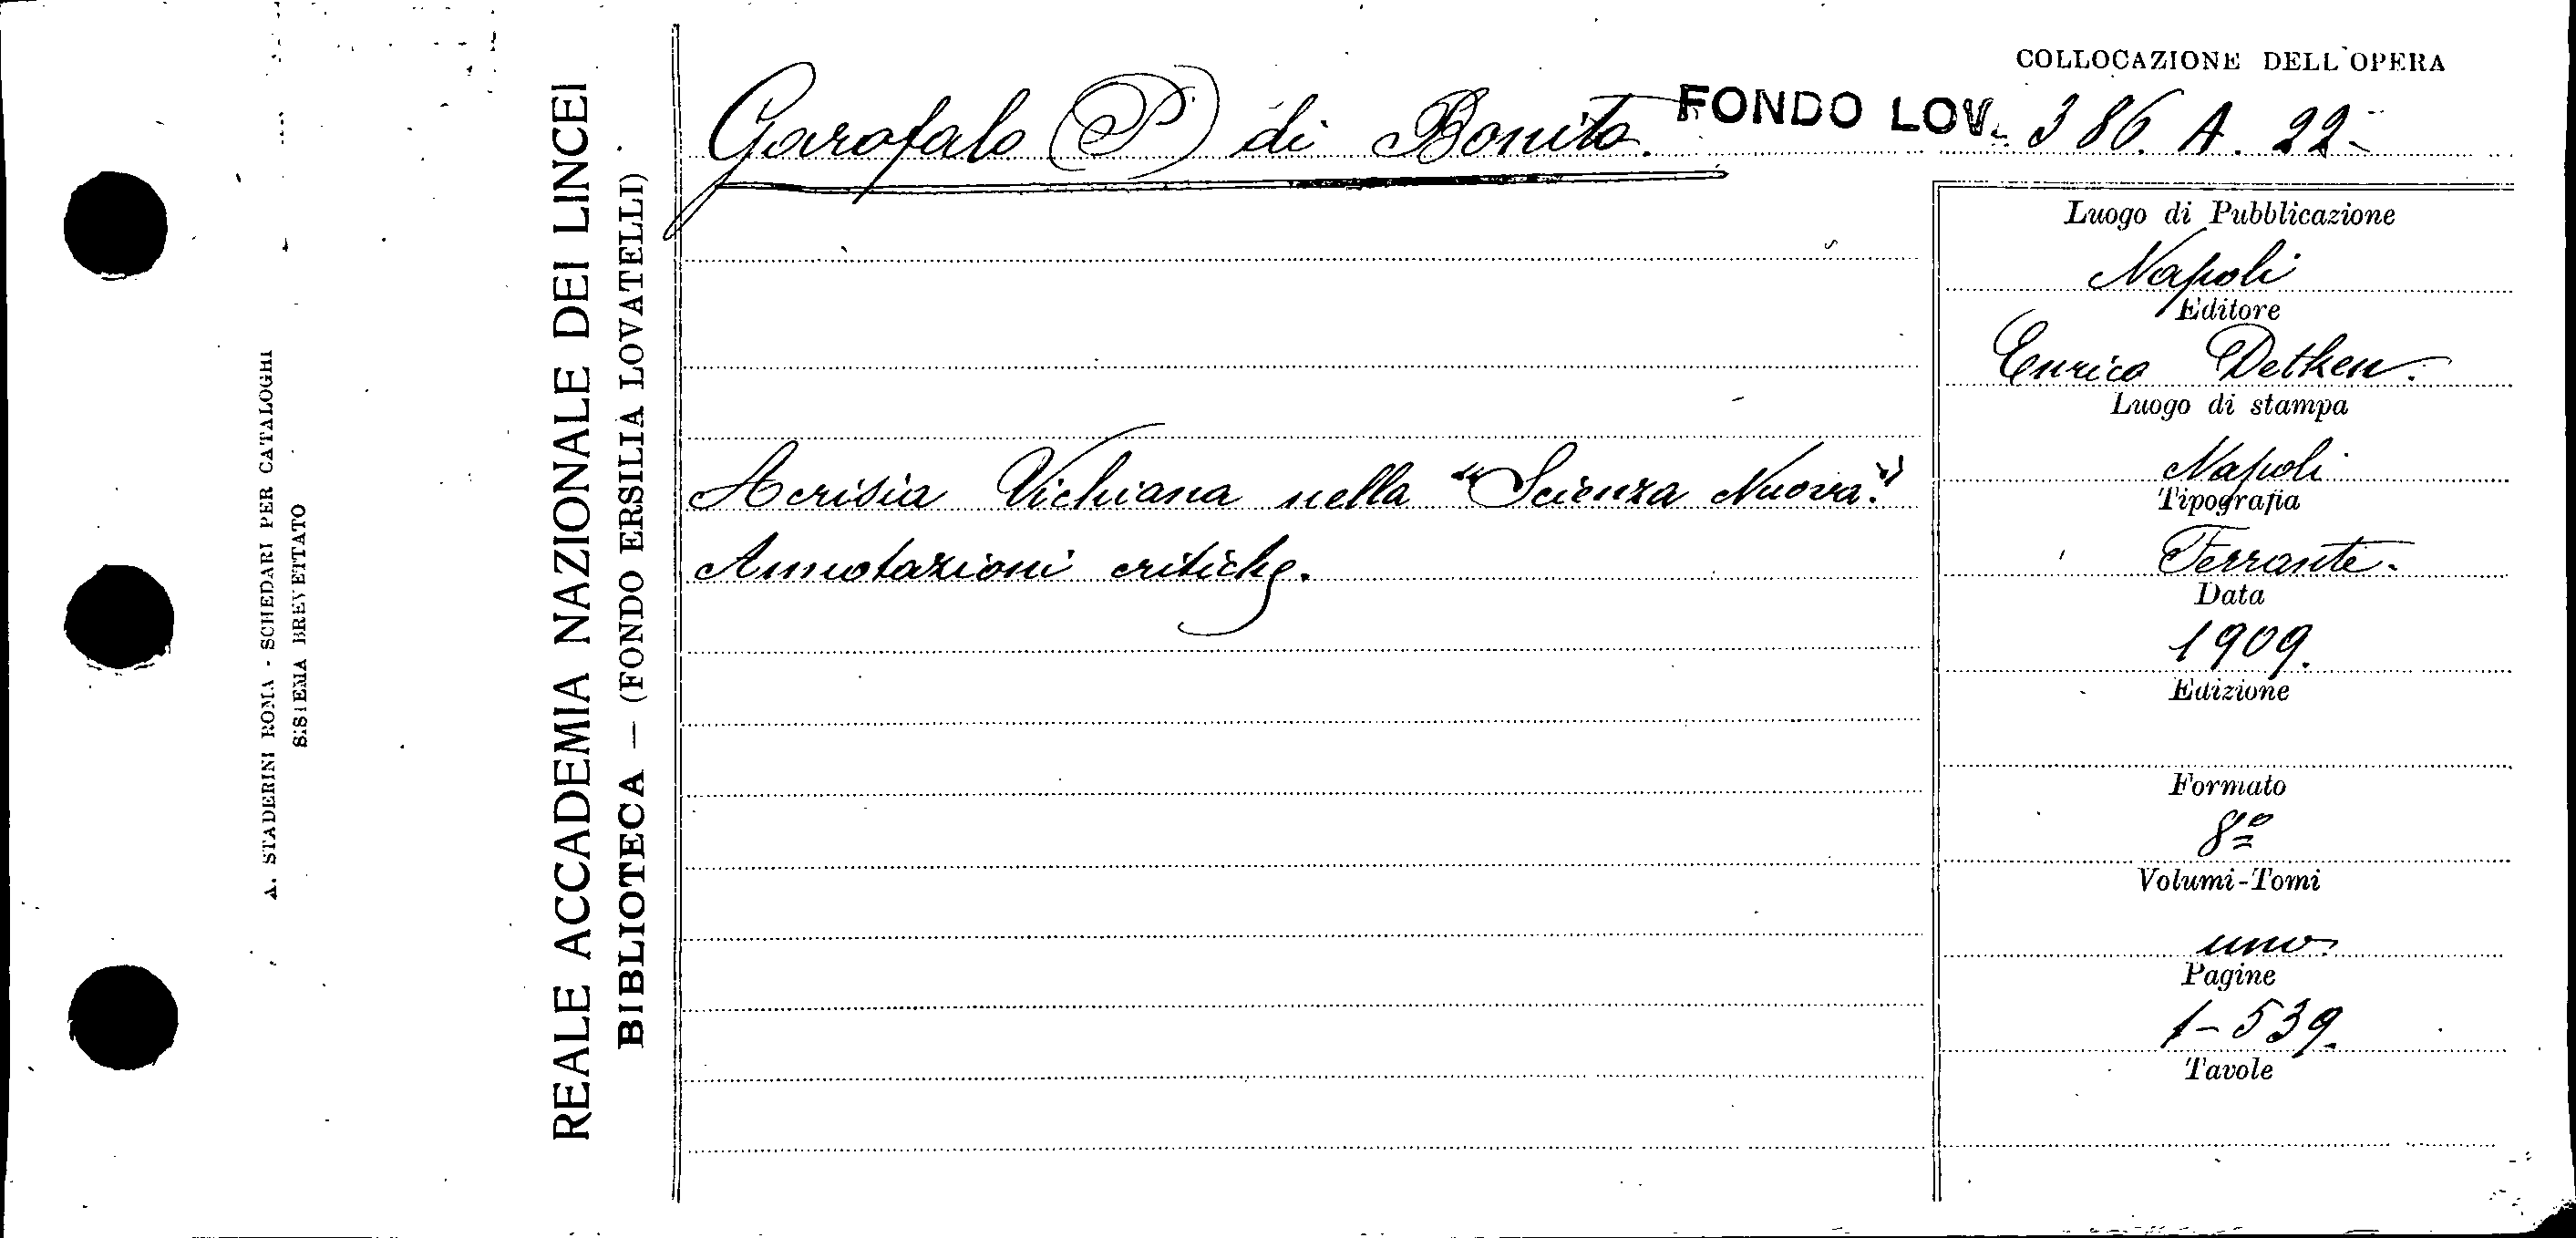 COLLOCAZIONE DELL'OPERA
Garofalo (P) di Bonito. FONDO LOV. 386. A. 22-
Luogo di Pubblicazione
Napoli
Editore
Enrico Detken.
Luogo di stampa
Napoli
Tipografia
Ferrante.
Data
1909.
Edizione
Formato
8º
Volumi-Tomi
uno
Pagine
1-539.
Tavole
Acrisia Vichiana nella "Scienza Nuova."
Annotazioni critiche.
REALE ACCADEMIA NAZIONALE DEI LINCEI
BIBLIOTECA — (FONDO ERSILIA LOVATELLI)
A. STADERINI ROMA - SCHEDARI PER CATALOGHI
SISTEMA BREVETTATO